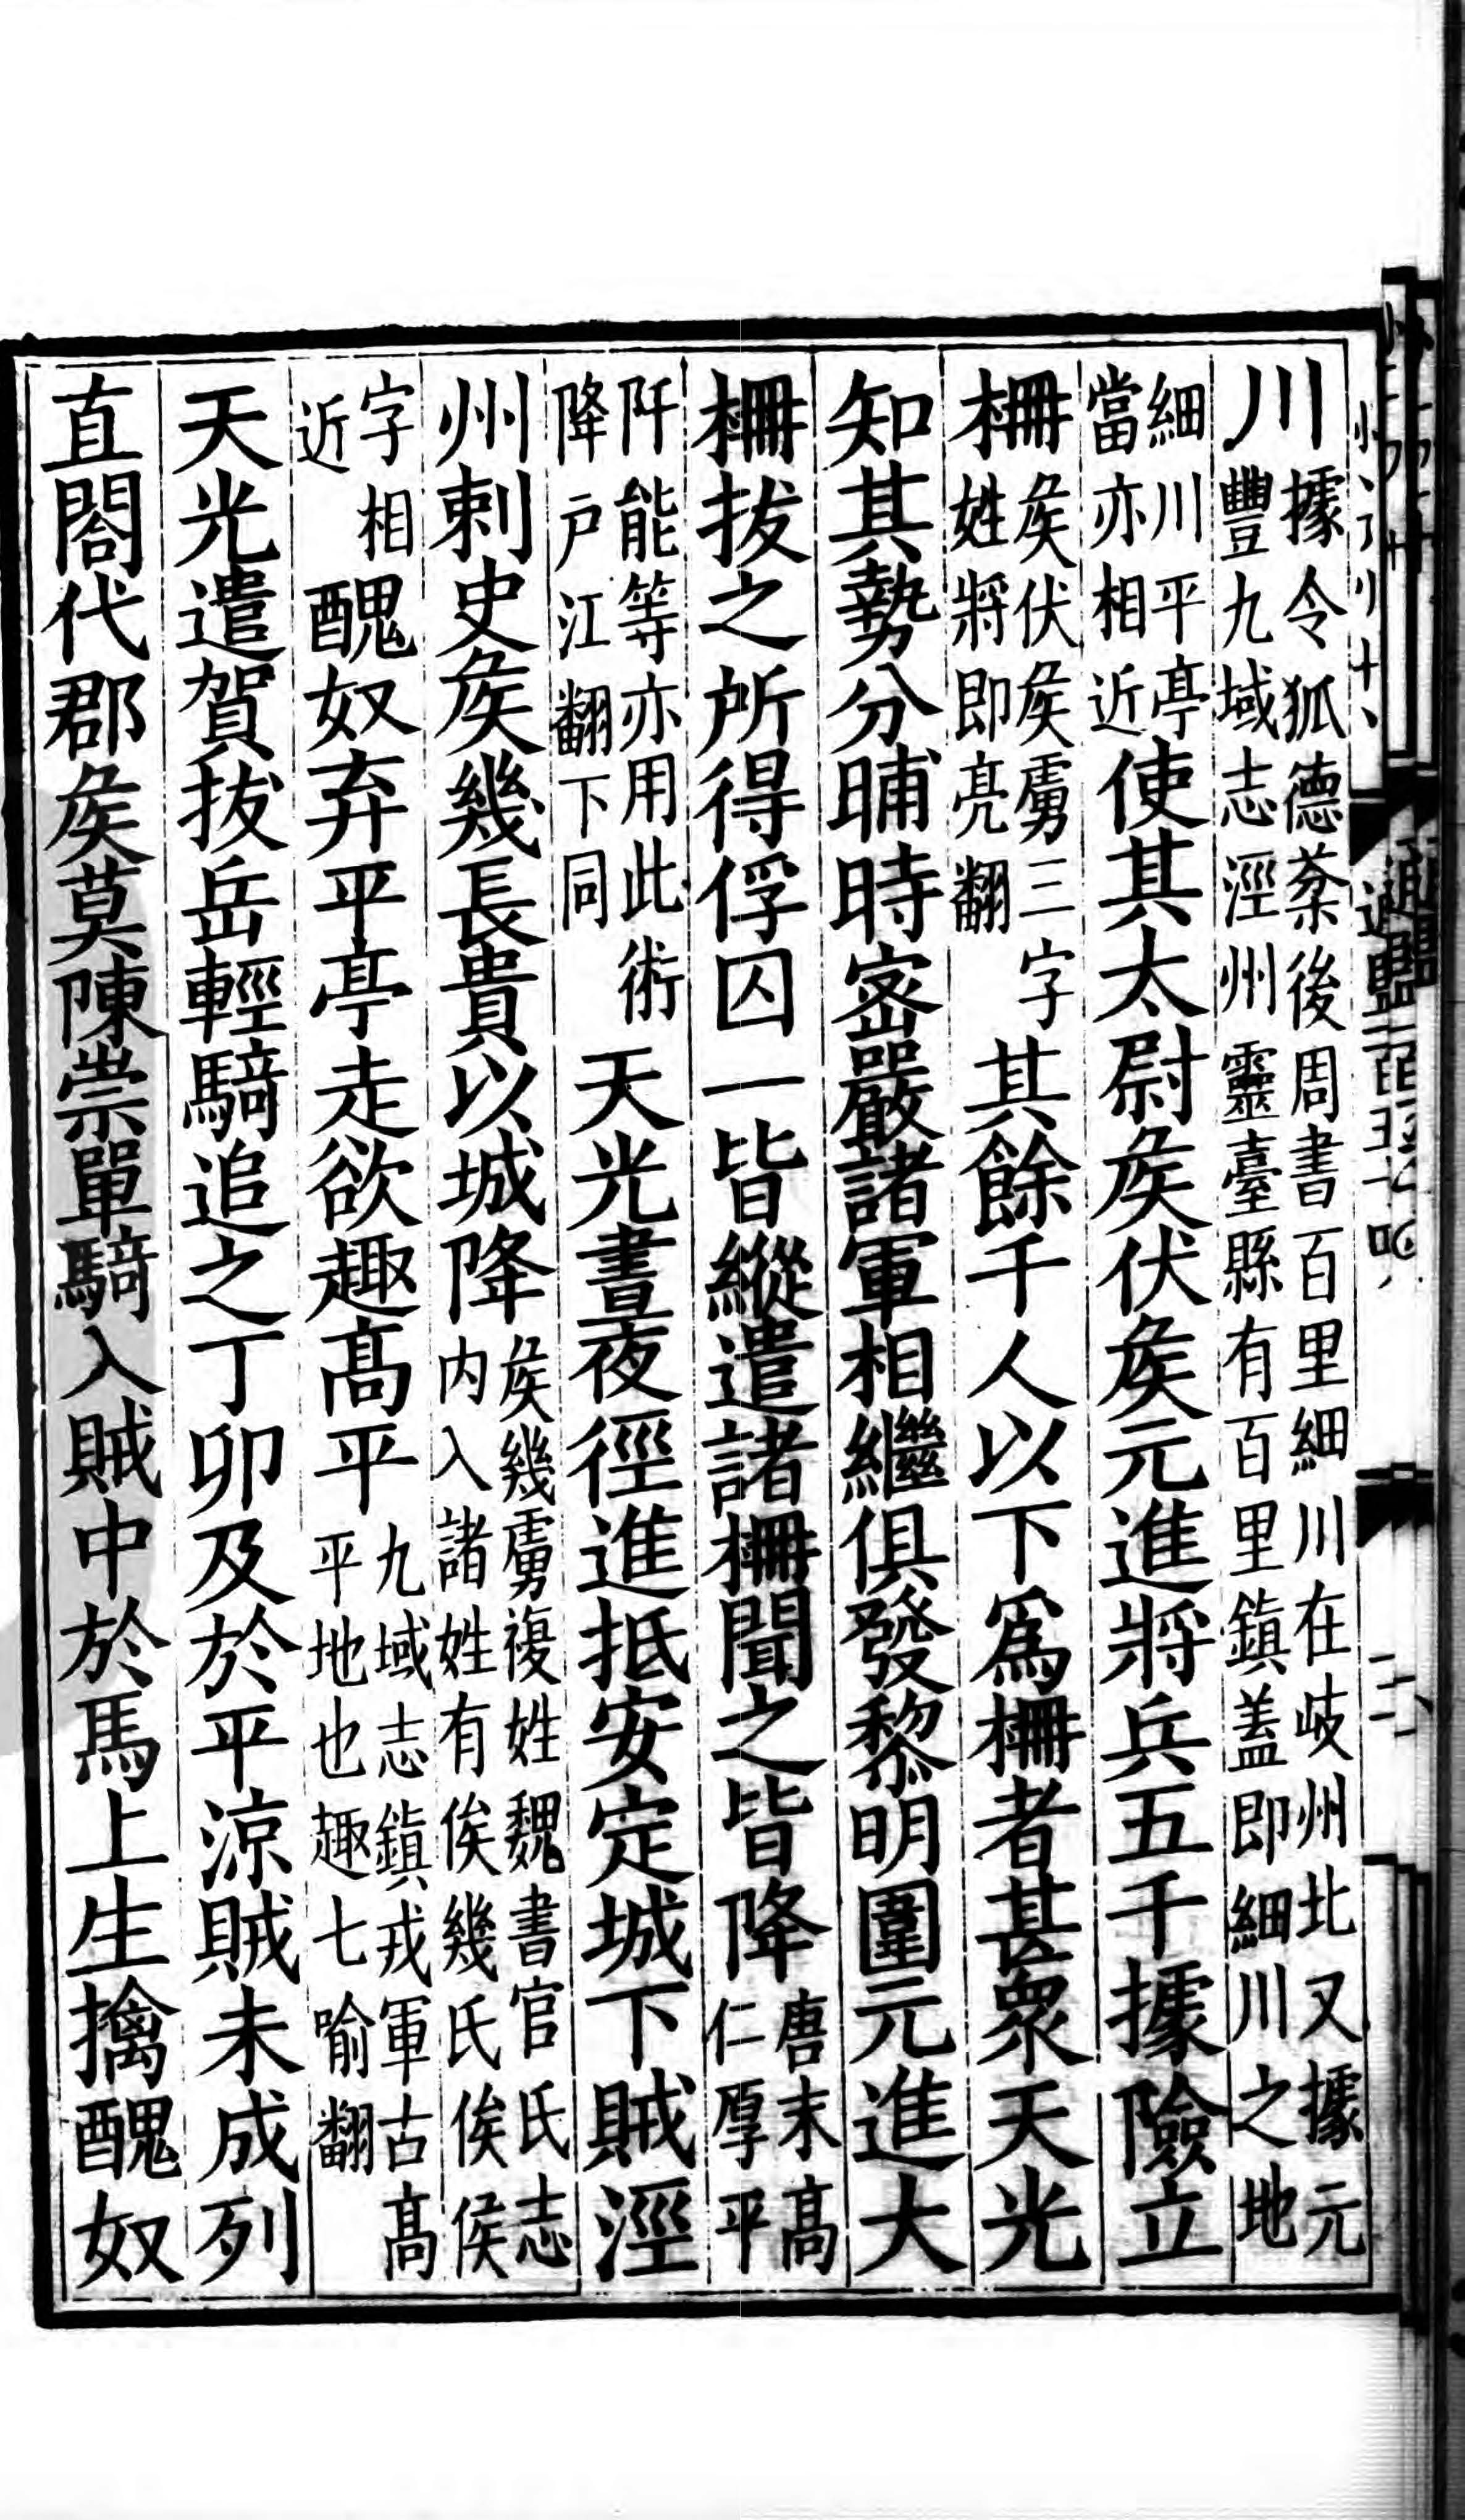 川據令狐德棻後周書百里細川在岐州北又據元豐九域志涇州靈臺縣有百里鎮蓋即細川之地
細川平亭當亦相近使其太尉矦伏矦元進將兵五千據險立
柵矦伏矦虜三字姓將即亮翻其餘千人以下爲柵者甚衆天光
知其勢分晡時宻嚴諸軍相繼俱發黎明圍元進大
柵拔之所得俘囚一皆縱遣諸柵聞之皆降唐末高仁厚平
阡能等亦用此術降戸江翻下同天光晝夜徑進抵安定城下賊涇
州刺史矦幾長貴以城降矦幾虜複姓魏書官氏志内入諸姓有俟幾氏俟侯
字相近醜奴弃平亭走欲趣髙平九域志鎮戎軍古髙平地也趣七喻翻
天光遣賀拔岳輕騎追之丁卯及於平涼賊未成列
直閤代郡矦莫陳崇單騎入賊中於馬上生擒醜奴